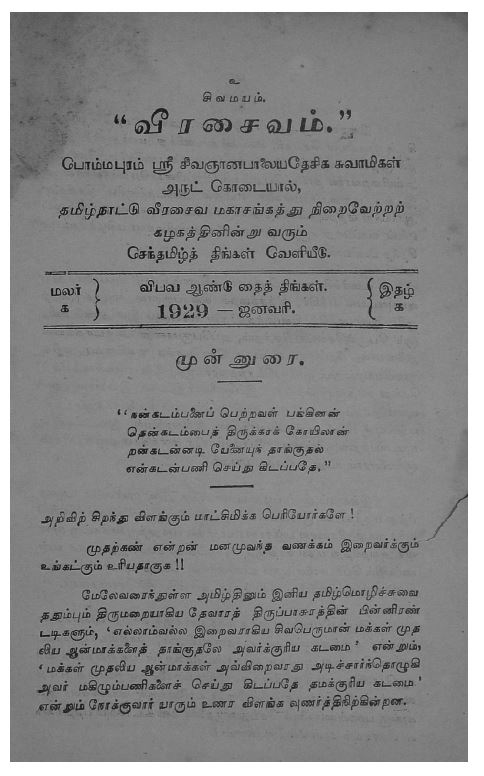 உ
சிவமயம்.
“வீரசைவம்.”
பொம்மபுரம் ஸ்ரீ சிவஞானபாலையதேசிக சுவாமிகள்
அருட் கொடையால்,
தமிழ்நாட்டு வீரசைவ மகாசங்கத்து நிறைவேற்றற்
கழகத்தினின்று வரும்
செந்தமிழ்த் திங்கள் வெளியீடு.
மலர் க
விபவ ஆண்டு தைத் திங்கள்.
1929 — ஜனவரி.
இதழ் க
முன்னுரை.
“நன்கடம்பனைப் பெற்றவள் பங்கினன்
தென்கடம்பைத் திருக்கரக் கோயிலான்
றன்கடன்னடி யேனையுந் தாங்குதல்
என்கடன்பணி செய்து கிடப்பதே.”
அறிவிற் சிறந்து விளங்கும் மாட்சிமிக்க பெரியோர்களே !
முதற்கண் என்றன் மனமுவந்த வணக்கம் இறைவர்க்கும்
உங்கட்கும் உரியதாகுக !!
மேலேவரைந்துள்ள அமிழ்தினும் இனிய தமிழ்மொழிச்சுவை
ததும்பும் திருமறையாகிய தேவாரத் திருப்பாசுரத்தின் பின்னிரண்
டடிகளும், ‘எல்லாம்வல்ல இறைவராகிய சிவபெருமான் மக்கள் முத
லிய ஆன்மாக்களைத் தாங்குதலே அவர்க்குரிய கடமை’ என்றும்,
‘மக்கள் முதலிய ஆன்மாக்கள் அவ்விறைவரது அடிச்சார்ந்தொழுகி
அவர் மகிழும்பணிகளைச் செய்து கிடப்பதே தமக்குரிய கடமை’
என்றும் நோக்குவார் யாரும் உணர விளங்க வுணர்த்திநிற்கின்றன.